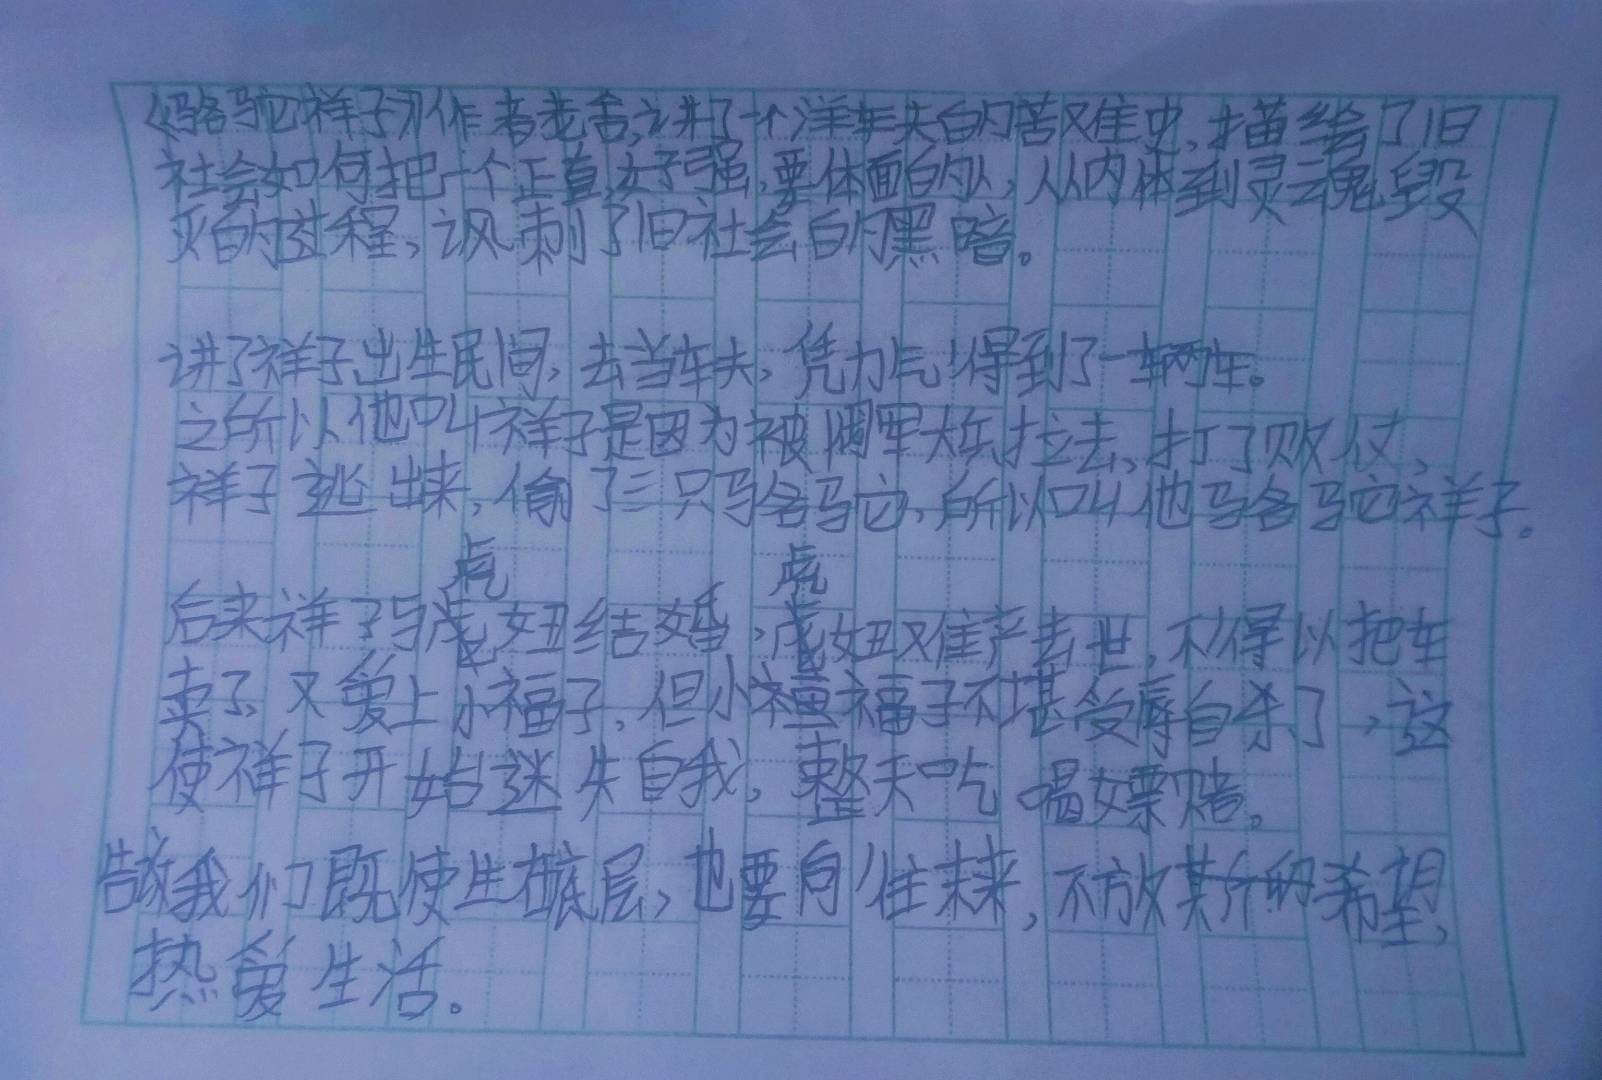 《骆驼祥子》作者老舍,讲了一个洋车夫的苦难史,描绘了旧
社会如何把一个正直,好强,要体面的人,从内体到灵魂毁
灭的过程,讽刺了旧社会的黑暗。
讲了祥子出生民间,去当车夫,凭力气得到了一辆车。
之所以他叫祥子是因为被军大兵拉去,打了败仗,
祥子逃出来,偷了三只骆驼,所以叫他骆驼祥子。
虎 虎
后来祥子与妞结婚,妞难产去世,不得以把车
卖了,又爱上小福子,但小福子不堪受辱自杀了,这
使祥子开始迷失自我,整天吃喝嫖赌。
我们既使生在底层,也要向往未来,不放的希望,
热爱生活。